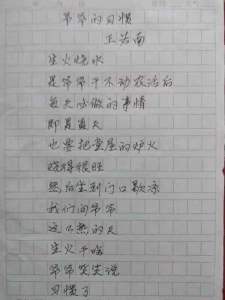 爷爷的习惯
王若南
生火烧水
是爷爷干不动农活后
每天必做的事情
即是夏天
也要把堂屋的炉火
烧得很旺
然后坐到门口歇凉
我们问爷爷
这么热的天
生火干啥
爷爷笑笑说
习惯了